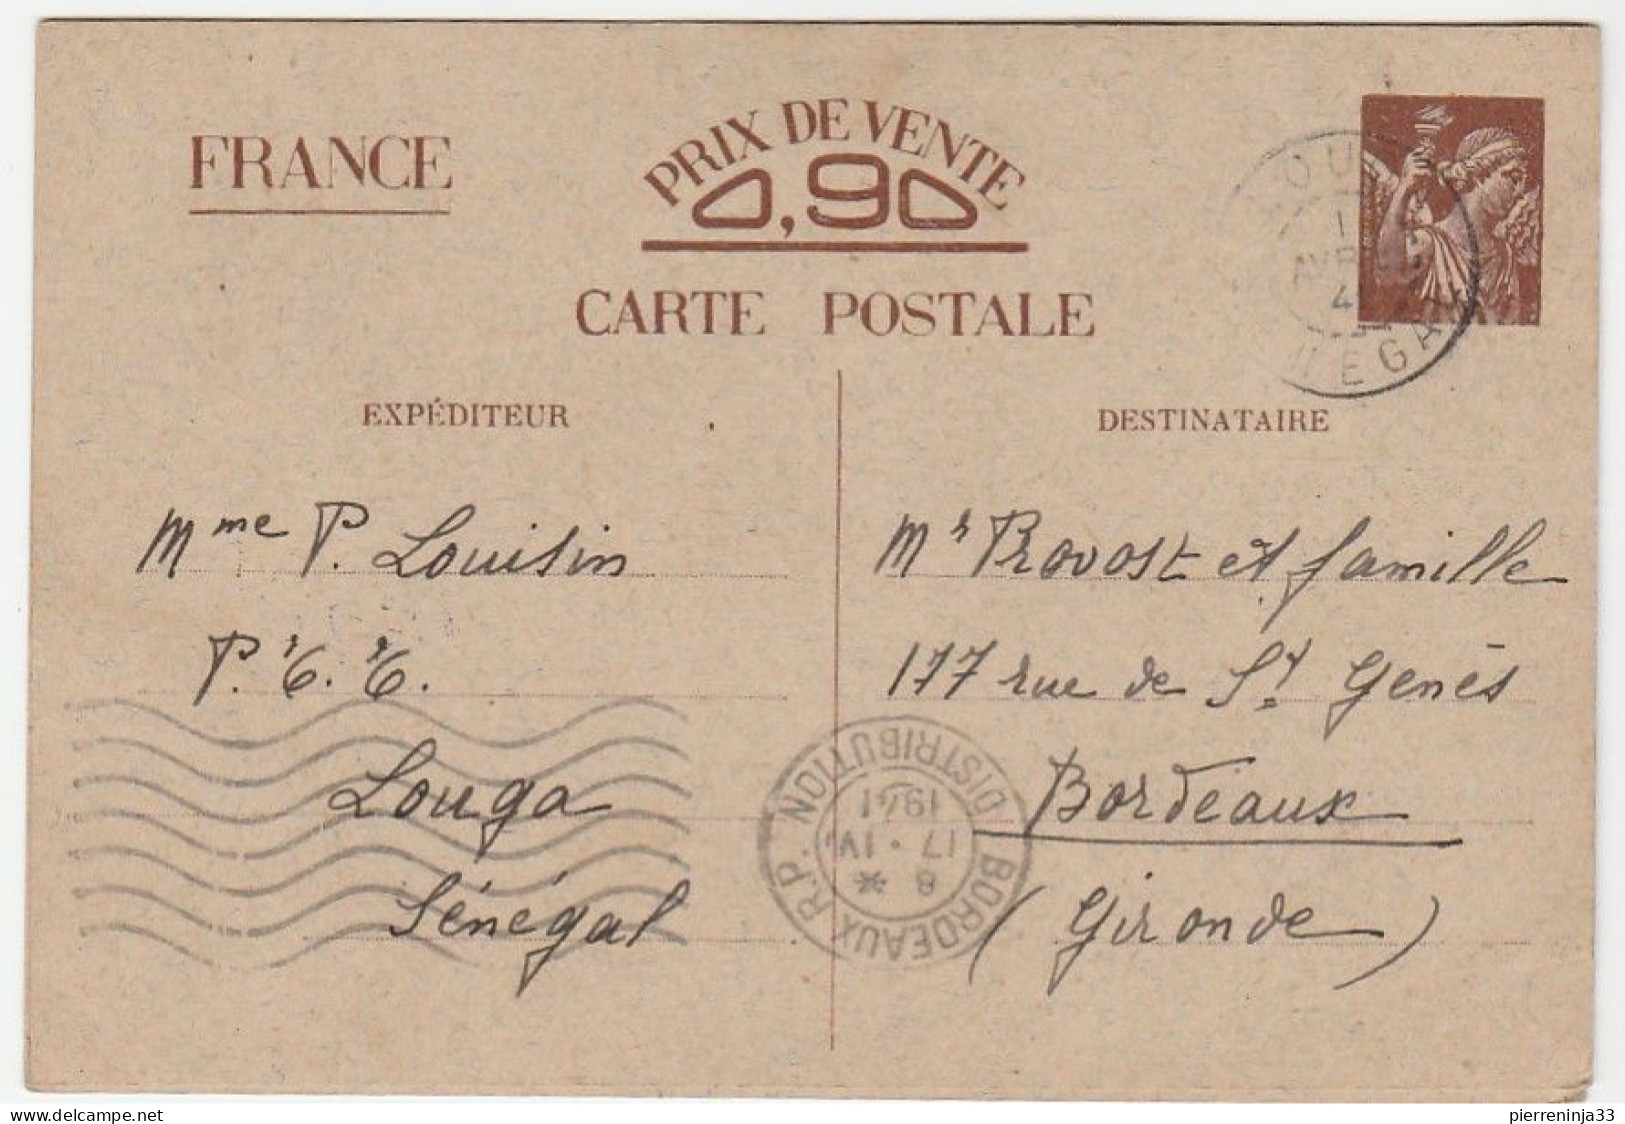 FRANCE
PRIX DE VENTE
0,90
CARTE POSTALE
EXPÉDITEUR
Mme P. Louisin
P. T. T.
Louga
Sénégal
DESTINATAIRE
Mr Provost et famille
177 rue de St Genès
Bordeaux
(Gironde)
BORDEAUX R.P. DISTRIBUTION
8 *
17 • IV
1941
AVR
delcampe.net
pierreninja33